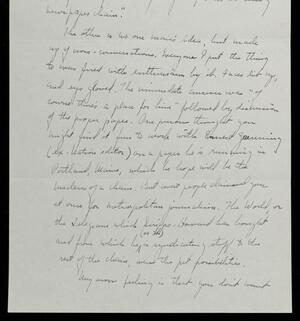 newspaper chain."
The other is no one man's idea, but made
up of many conversations. Everyone I put the thing
to was fired with enthusiasm by it. Faces lit up,
and eyes glowed. The immediate answer was "of
course there's a place for him" followed by discussion
of the proper paper. One person thought you
might find it fun to work with Ernest Gruening
(ex-Nation editor) on a paper he is running in
Portland, Maine, which he hopes will be the
nucleus of a chain. But most people demand you
at once for metropolitan journalism. The World, or
the Telegram which Scripps-Howard has bought
(or
and from which he is syndicating stuff to the
rest of the chain, were the pet possibilities.
My own feeling is that you don't want